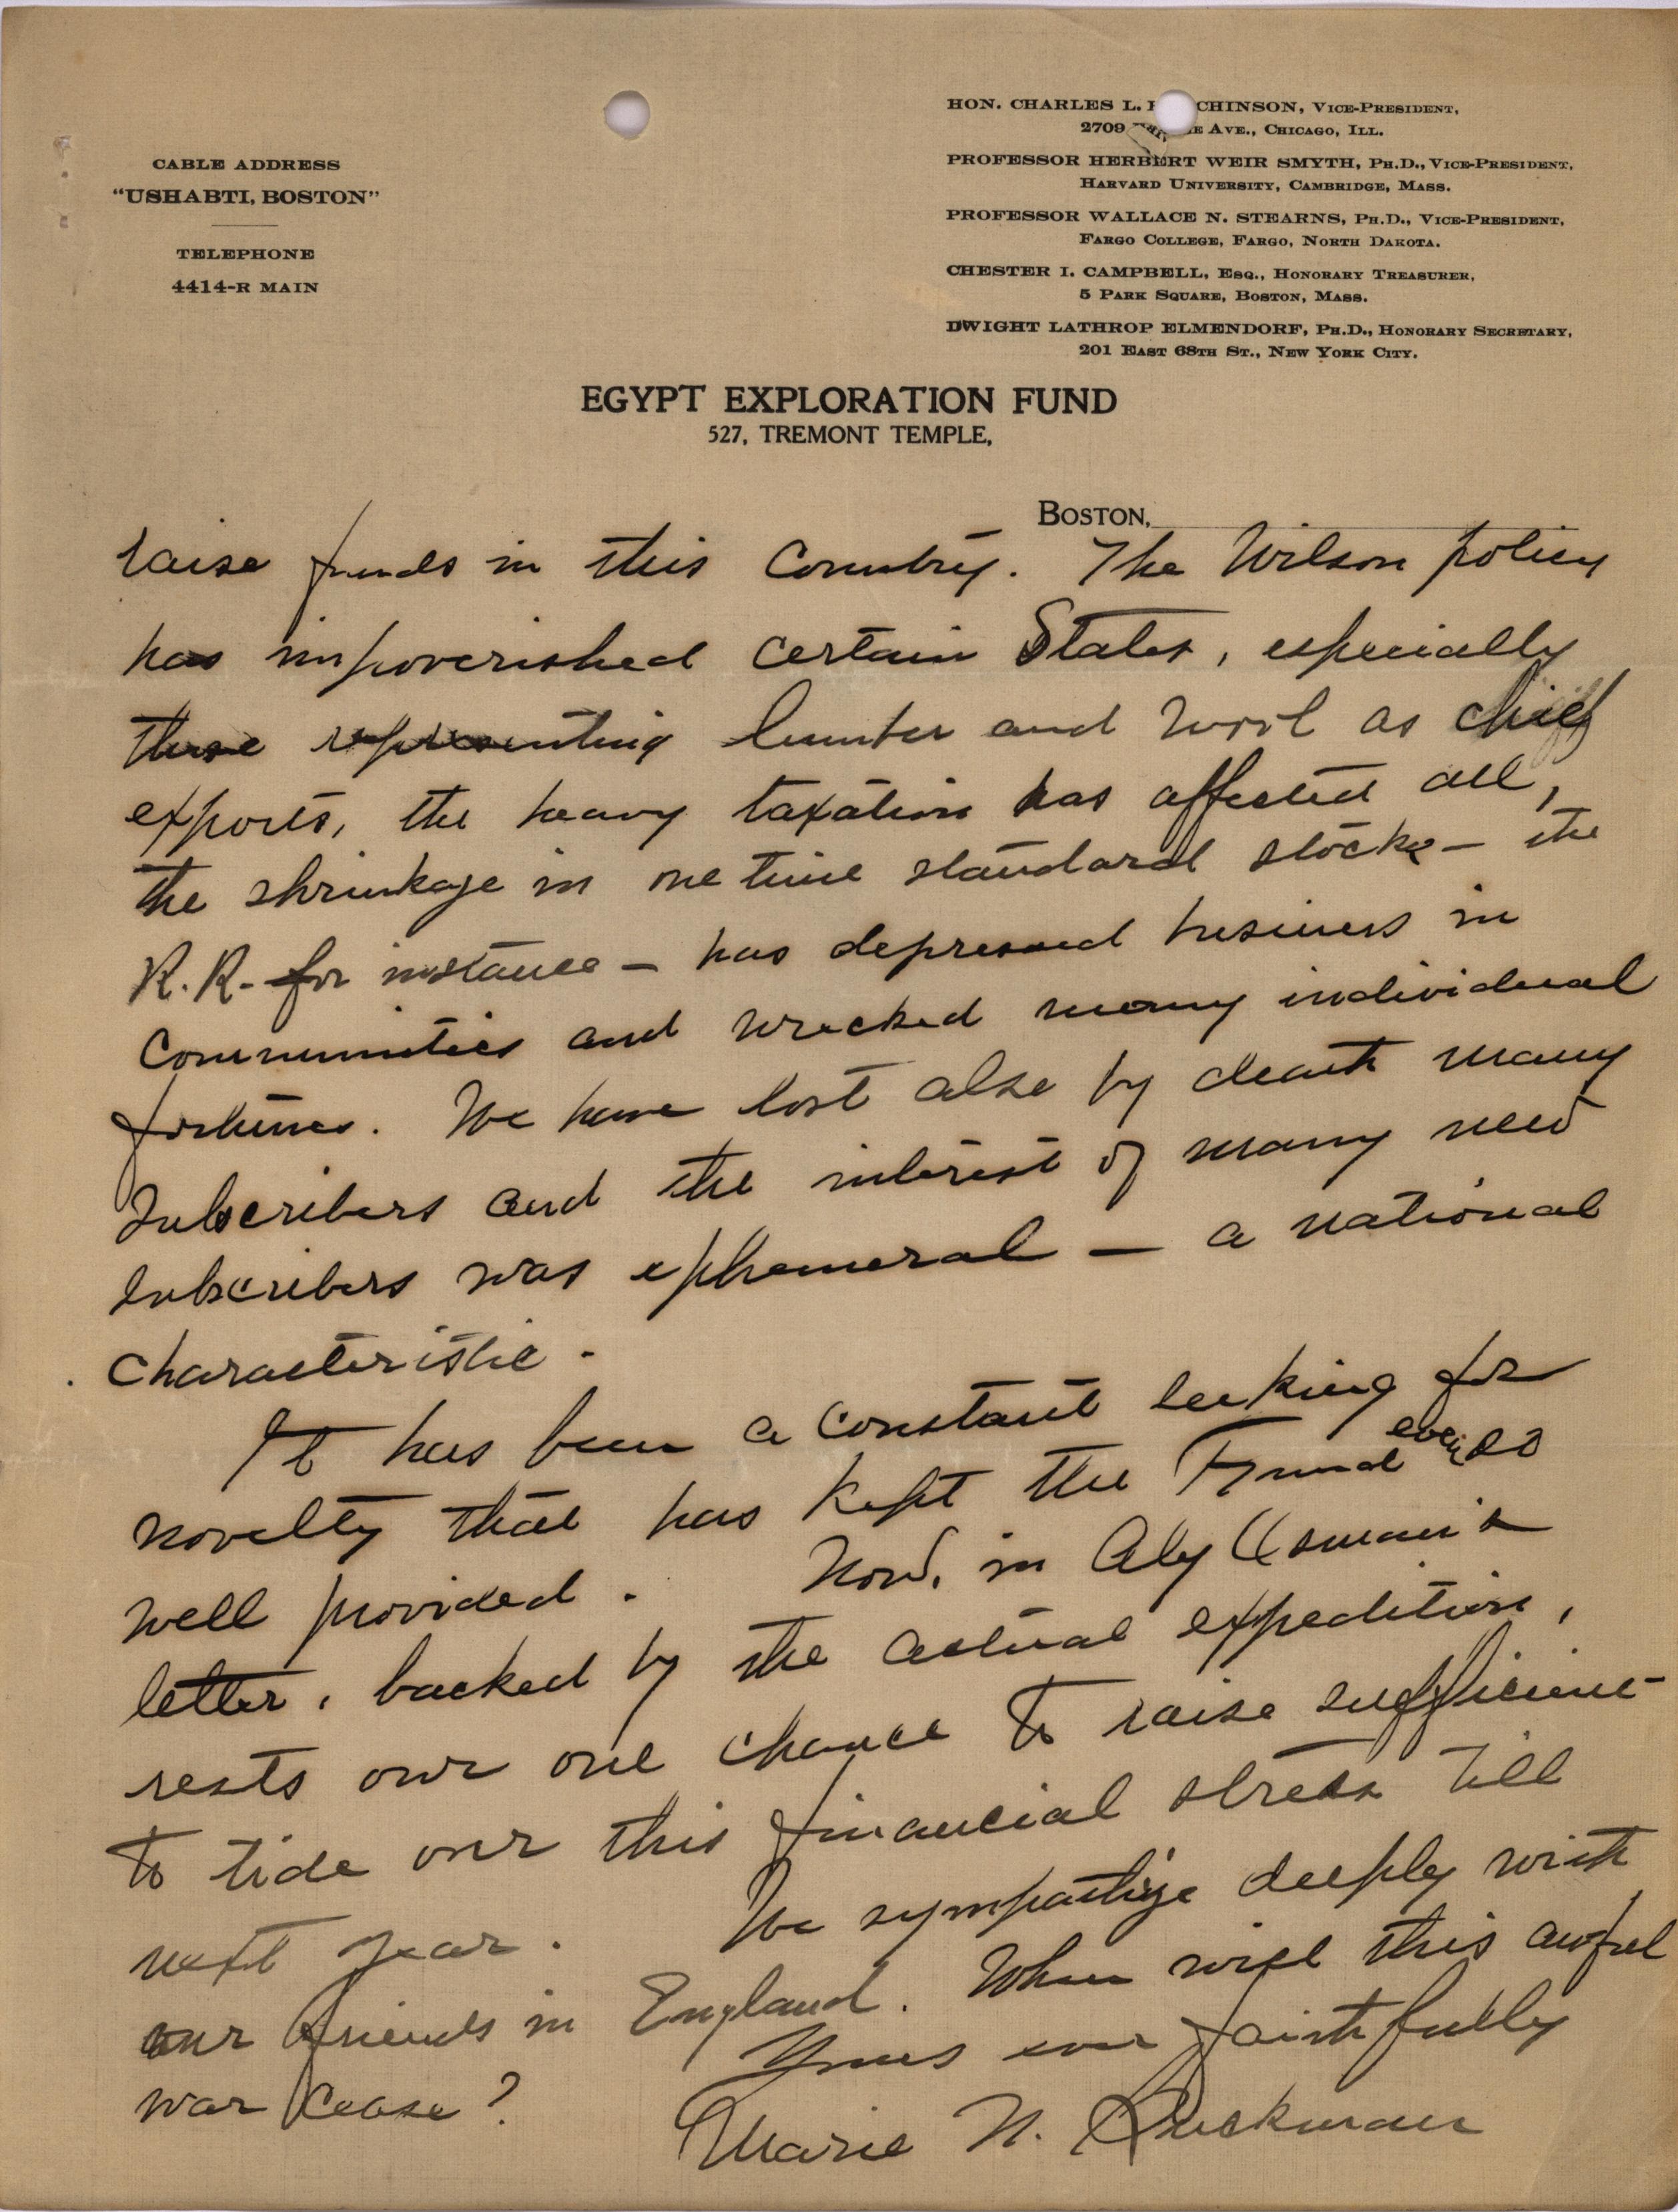 CABLE ADDRESS
"USHABTI, BOSTON"
TELEPHONE
4414-R MAIN
HON. CHARLES L. H CHINSON, VICE-PRESIDENT,
2709 E AVE., CHICAGO, ILL.
PROFESSOR HERBERT WEIR SMYTH, PH.D., VICE-PRESIDENT,
HARVARD UNIVERSITY, CAMBRIDGE, MASS.
PROFESSOR WALLACE N. STEARNS, PH.D., VICE-PRESIDENT,
FARGO COLLEGE, FARGO, NORTH DAKOTA.
CHESTER I. CAMPBELL, ESQ., HONORARY TREASURER,
5 PARK SQUARE, BOSTON, MASS.
DWIGHT LATHROP ELMENDORF, PH.D., HONORARY SECRETARY,
201 EAST 68TH ST., NEW YORK CITY.
EGYPT EXPLORATION FUND
527, TREMONT TEMPLE,
BOSTON,
raise funds in this Country. The Wilson policy
has impoverished certain States, especially
those representing lumber and wool as chief
exports, the heavy taxation has affected all,
the shrinkage in one time standard stocks – the
R.R. for instance – has depressed business in
Communities and wrecked many individual
fortunes. We have lost also by death many
Subscribers and the interest of many new
Subscribers was ephemeral – a national
characteristic.
It has been a constant seeking for
novelty that has kept the Fund even so
well provided. Now, in Aly Osman's
letter, backed by the actual expedition,
rests our one chance to raise sufficient
to tide over this financial stress till
next year. We sympathize deeply with
our friends in England. When will this awful
war cease? Yours ever faithfully
Marie N. Buckman